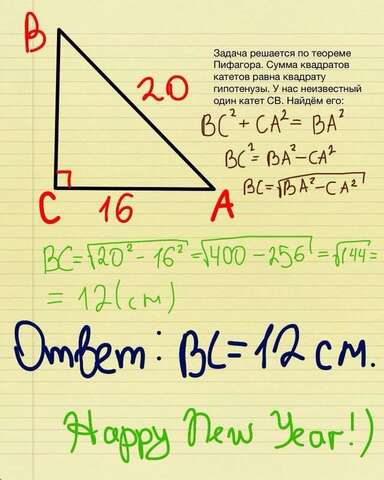 B
20
C
16
A
Задача решается по теореме
Пифагора. Сумма квадратов
катетов равна квадрату
гипотенузы. У нас неизвестный
один катет CB. Найдём его:
BC² + CA² = BA²
BC² = BA² - CA²
BC = √BA² - CA²
BC = √20² - 16² = √400 - 256 = √144 =
= 12 (см)
Ответ: BC = 12 см.
Happy New Year!)